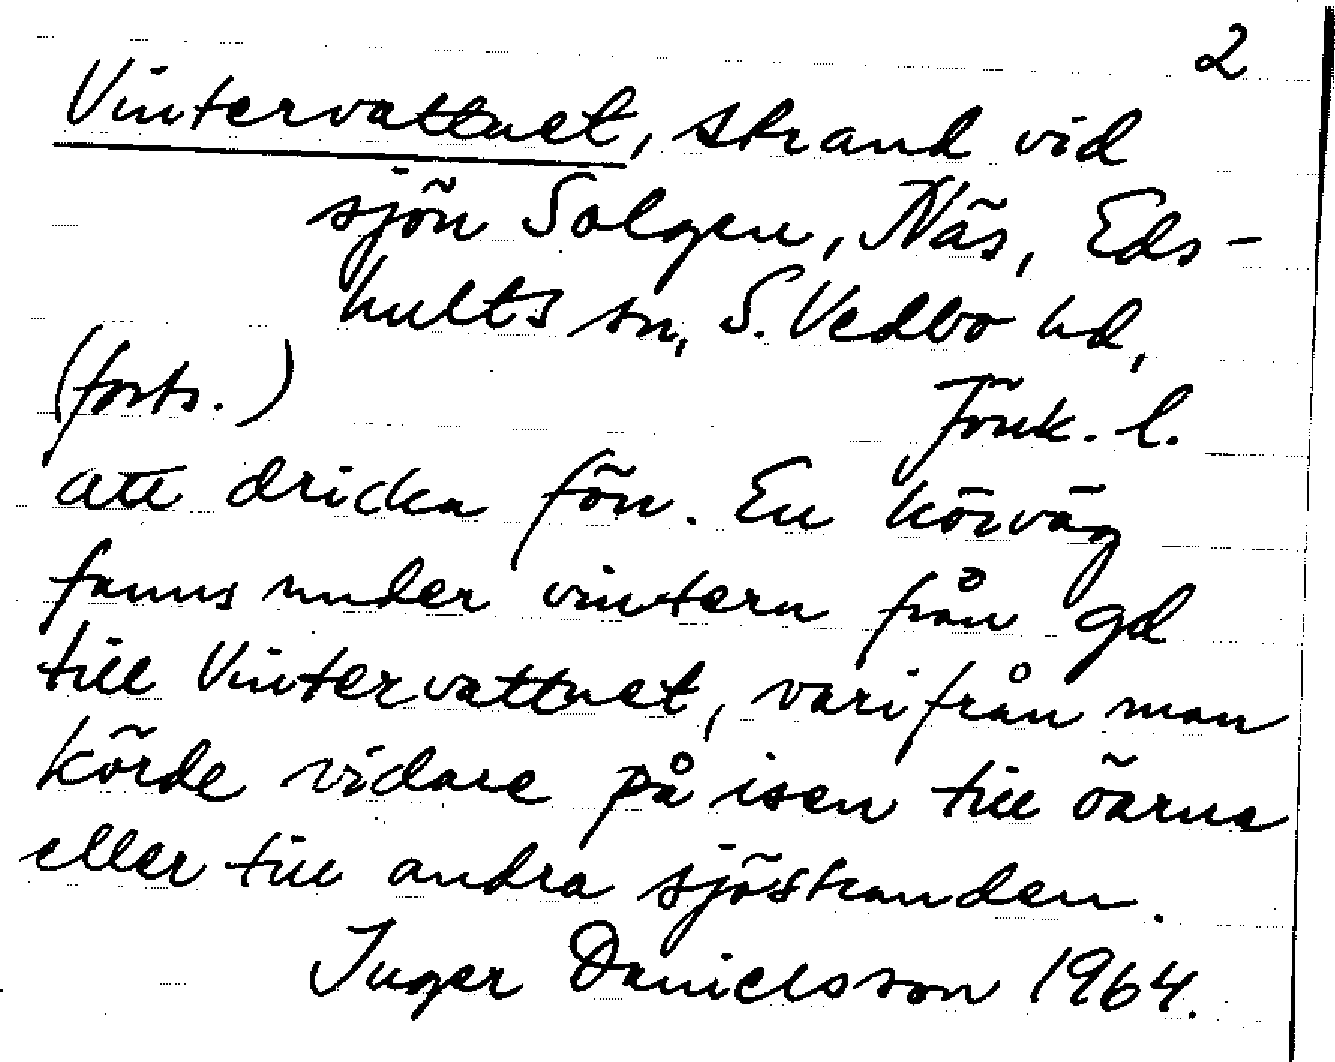 2
Vintervattnet, strand vid
sjön Solgen, Näs, Eds-
hults sn, S. Vedbo hd,
(forts.) Jönk. l.
att dricka för. En körväg
fanns under vintern från gd
till Vintervattnet, varifrån man
körde vidare på isen till öarna
eller till andra sjöstranden.
Inger Danielsson 1964.